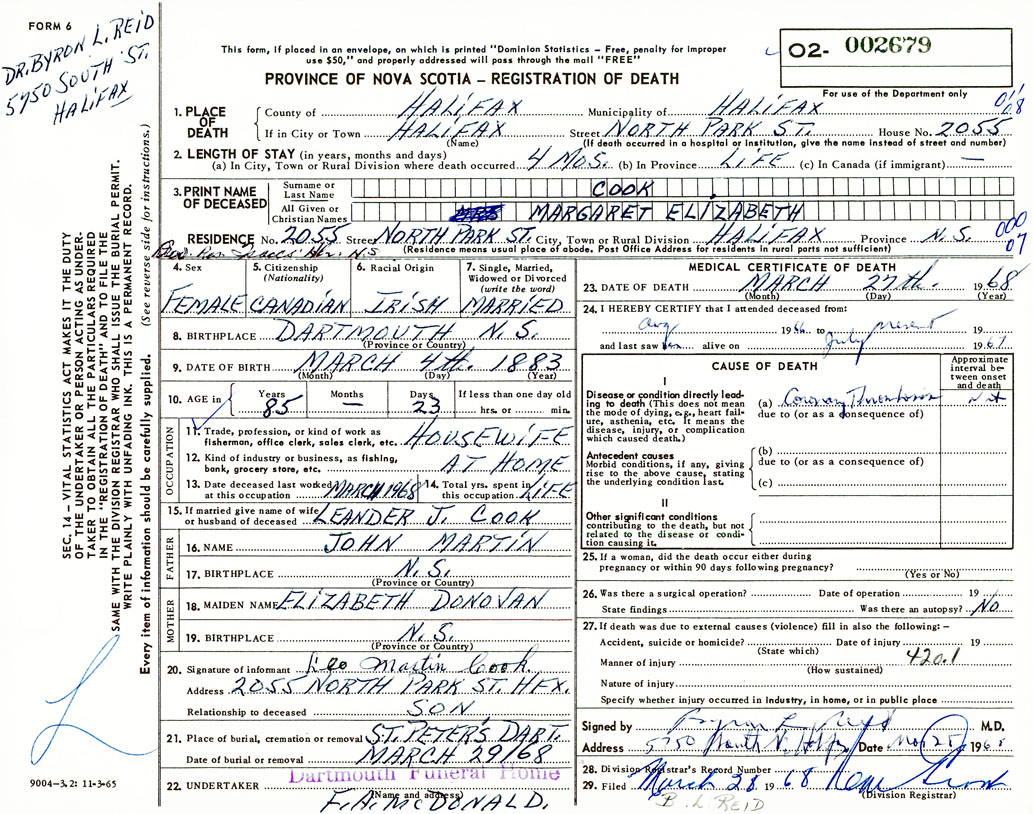 FORM 6
DR. BYRON L. REID
5750 SOUTH ST.
HALIFAX
This form, if placed in an envelope, on which is printed "Dominion Statistics – Free, penalty for improper
use $50," and properly addressed will pass through the mail "FREE"
PROVINCE OF NOVA SCOTIA – REGISTRATION OF DEATH
O2- 002679
For use of the Department only
011
08
1. PLACE OF DEATH
County of HALIFAX Municipality of HALIFAX
If in City or Town HALIFAX Street NORTH PARK ST. House No. 2055
(Name) (If death occurred in a hospital or institution, give the name instead of street and number)
2. LENGTH OF STAY (in years, months and days)
(a) In City, Town or Rural Division where death occurred 4 MOS. (b) In Province LIFE (c) In Canada (if immigrant) —
3. PRINT NAME OF DECEASED
Surname or Last Name COOK
All Given or Christian Names MARGARET ELIZABETH
RESIDENCE No. 2055 Street NORTH PARK ST. City, Town or Rural Division HALIFAX Province N.S.
(Residence means usual place of abode. Post Office Address for residents in rural parts not sufficient)
000
07
4. Sex FEMALE
5. Citizenship (Nationality) CANADIAN
6. Racial Origin IRISH
7. Single, Married, Widowed or Divorced (write the word) MARRIED
8. BIRTHPLACE DARTMOUTH N.S.
(Province or Country)
9. DATE OF BIRTH MARCH 4th. 1883
(Month) (Day) (Year)
10. AGE in Years 85 Months — Days 23 If less than one day old hrs. or min.
OCCUPATION
11. Trade, profession, or kind of work as fisherman, office clerk, sales clerk, etc. HOUSEWIFE
12. Kind of industry or business, as fishing, bank, grocery store, etc. AT HOME
13. Date deceased last worked at this occupation MARCH 1968 14. Total yrs. spent in this occupation LIFE
15. If married give name of wife or husband of deceased LEANDER J. COOK
FATHER
16. NAME JOHN MARTIN
17. BIRTHPLACE N.S.
(Province or Country)
MOTHER
18. MAIDEN NAME ELIZABETH DONOVAN
19. BIRTHPLACE N.S.
(Province or Country)
20. Signature of informant Leo Martin Cook
Address 2055 NORTH PARK ST. HFX.
Relationship to deceased SON
21. Place of burial, cremation or removal ST. PETER'S DART.
Date of burial or removal MARCH 29/68
Dartmouth Funeral Home
22. UNDERTAKER F. A. McDONALD.
(Name and address)
MEDICAL CERTIFICATE OF DEATH
23. DATE OF DEATH MARCH 27th. 1968
(Month) (Day) (Year)
24. I HEREBY CERTIFY that I attended deceased from:
Aug 1966 to present 19
and last saw her alive on July 1967
CAUSE OF DEATH
Approximate interval between onset and death
I
Disease or condition directly leading to death (This does not mean the mode of dying, e.g., heart failure, asthenia, etc. It means the disease, injury, or complication which caused death.)
(a) Coronary Thrombosis
due to (or as a consequence of)
Antecedent causes
Morbid conditions, if any, giving rise to the above cause, stating the underlying condition last.
(b)
due to (or as a consequence of)
(c)
II
Other significant conditions
contributing to the death, but not related to the disease or condition causing it.
25. If a woman, did the death occur either during
pregnancy or within 90 days following pregnancy?
(Yes or No)
26. Was there a surgical operation? Date of operation 19
State findings Was there an autopsy? No
27. If death was due to external causes (violence) fill in also the following:–
Accident, suicide or homicide? Date of injury 19
(State which)
Manner of injury 420.1
(How sustained)
Nature of injury
Specify whether injury occurred in industry, in home, or in public place
Signed by Byron L. Reid M.D.
Address 5750 South St. Date 196
28. Division Registrar's Record Number
29. Filed March 28 1968
(Division Registrar)
B. L. REID
SEC. 14 – VITAL STATISTICS ACT MAKES IT THE DUTY
OF THE UNDERTAKER OR PERSON ACTING AS UNDER-
TAKER TO OBTAIN ALL THE PARTICULARS REQUIRED
IN THE "REGISTRATION OF DEATH" AND TO FILE THE
SAME WITH THE DIVISION REGISTRAR WHO SHALL ISSUE THE BURIAL PERMIT.
WRITE PLAINLY WITH UNFADING INK. THIS IS A PERMANENT RECORD.
Every item of information should be carefully supplied. (See reverse side for instructions.)
9004–3.2: 11-3-65